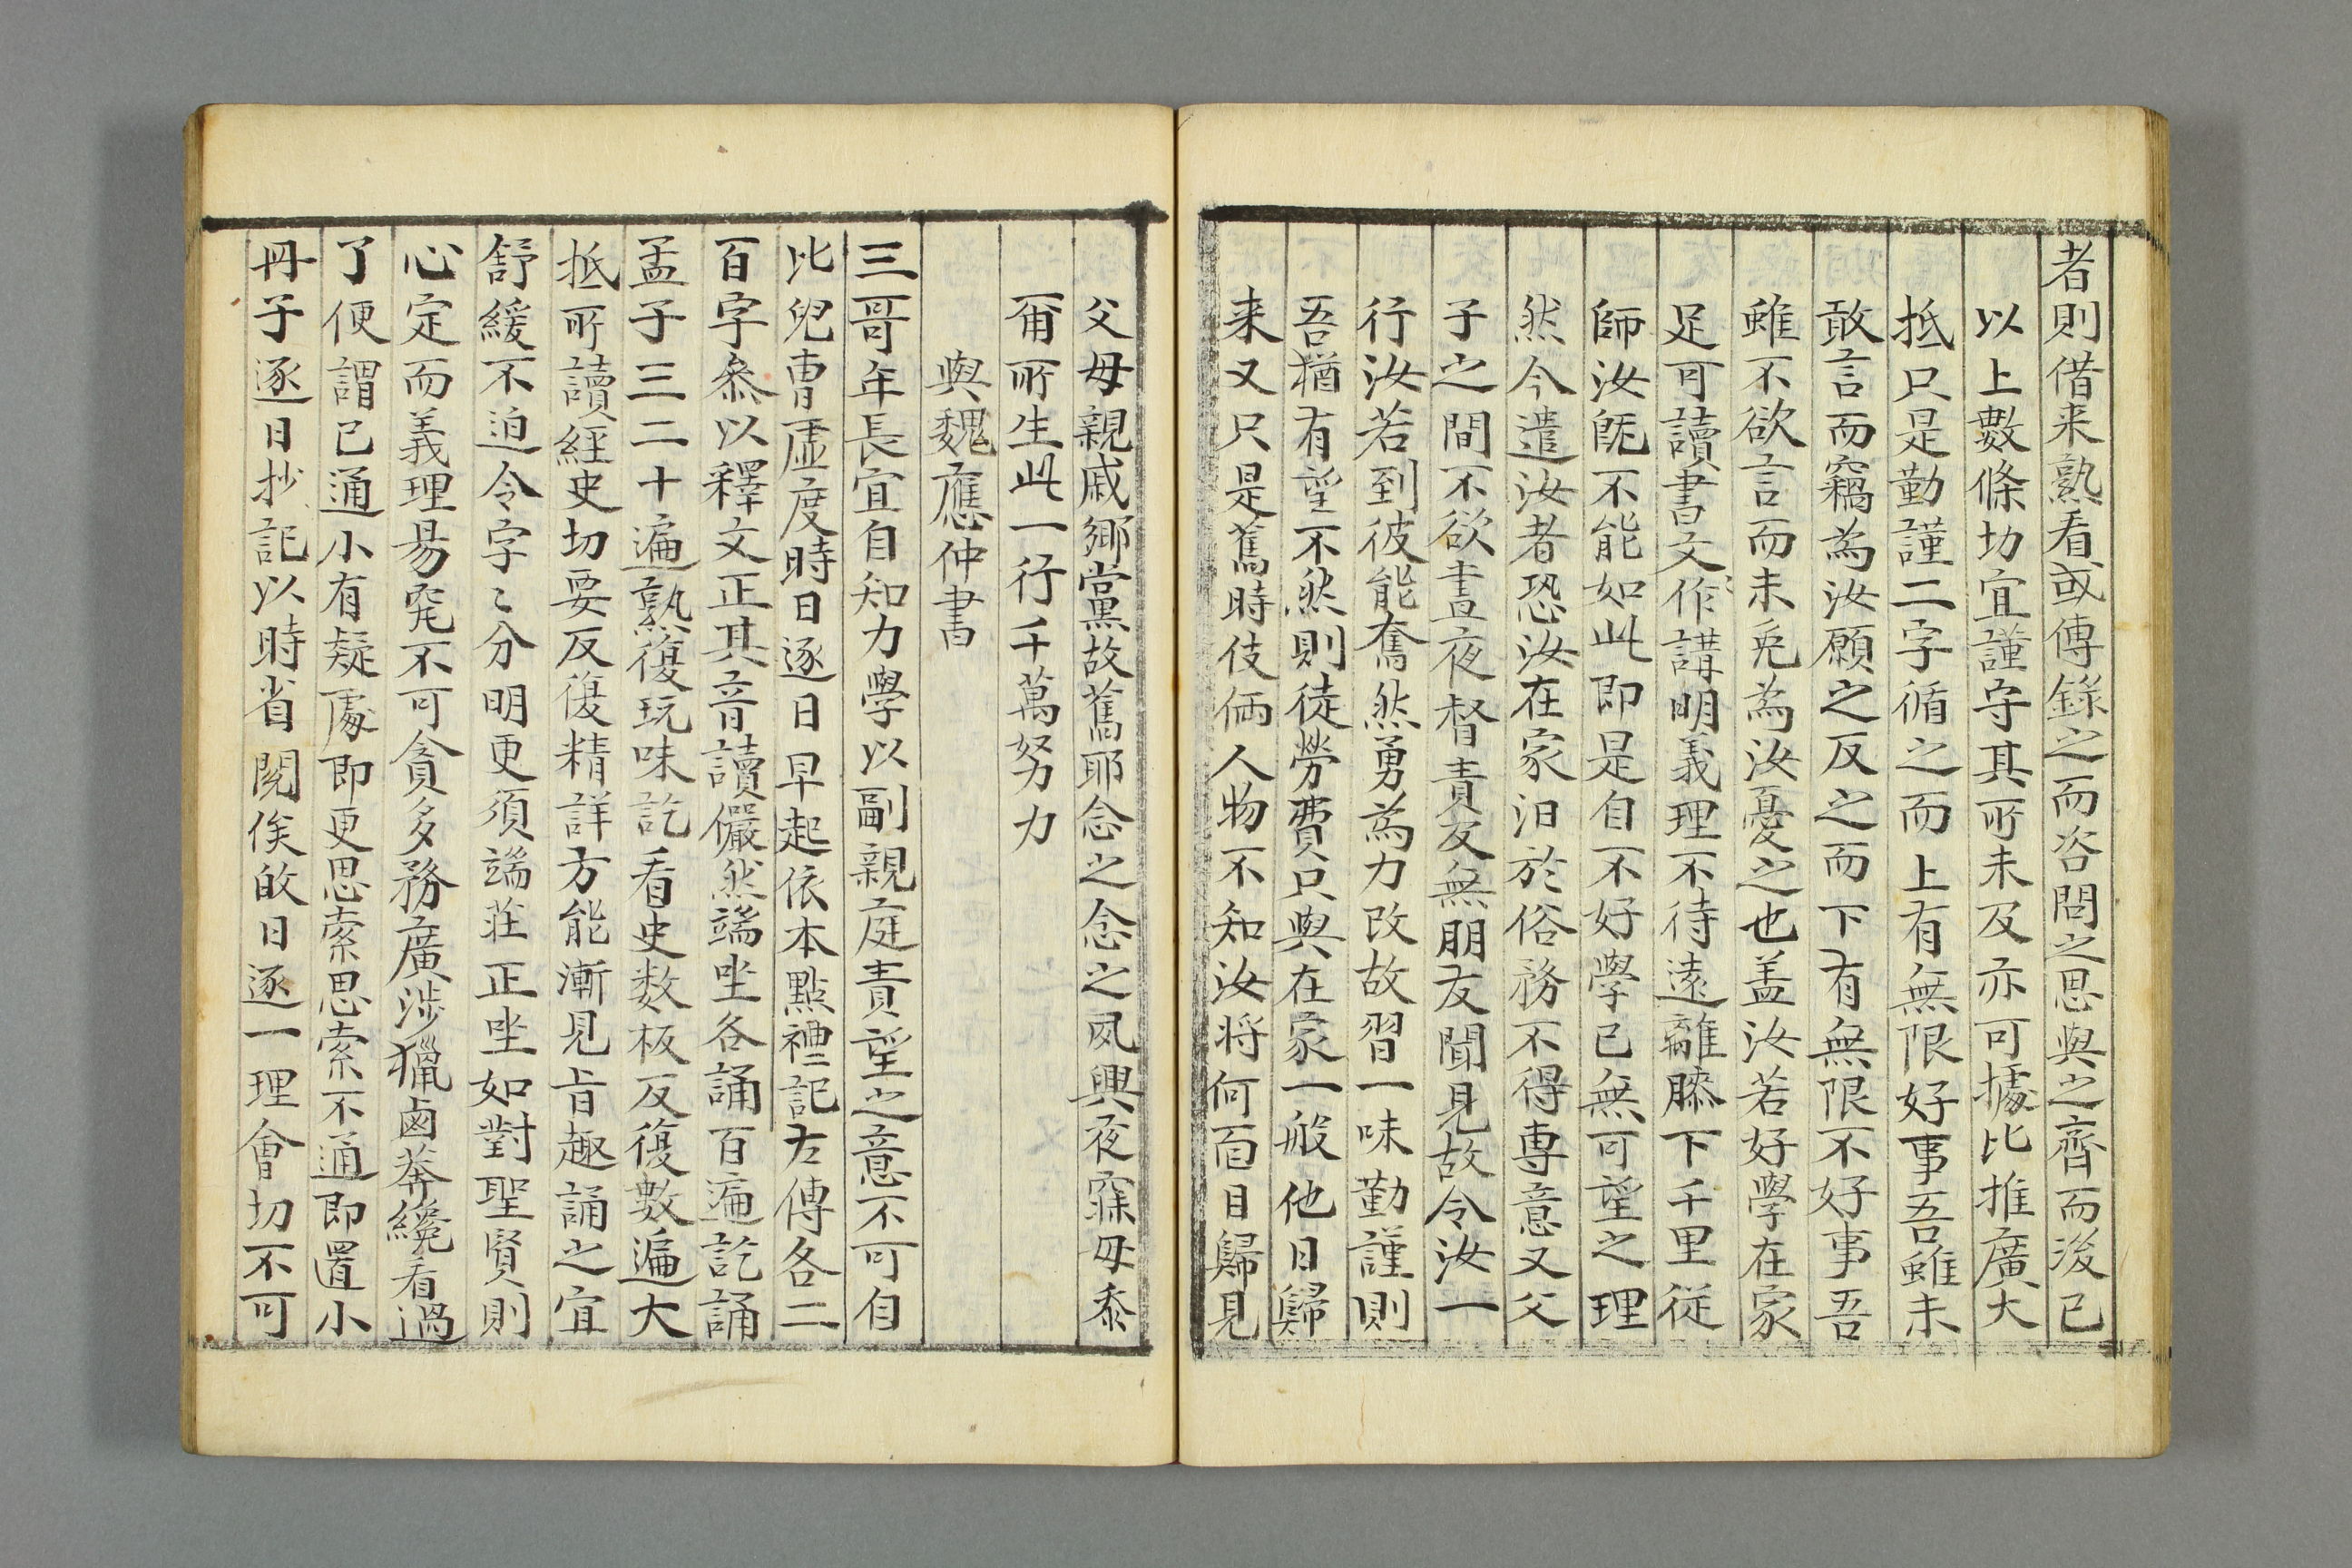 者則借来熟看或傳錄之而咨問之思與之齊而後已
以上數條切宜謹守其所未及亦可據比推廣大
抵只是勤謹二字循之而上有無限好事吾雖未
敢言而竊為汝願之反之而下有無限不好事吾
雖不欲言而未免為汝憂之也盖汝若好學在家
足可讀書文作講明義理不待遠離膝下千里従
師汝既不能如此即是自不好學已無可望之理
然今遣汝者恐汝在家汩於俗務不得専意又父
子之間不欲晝夜督責友無朋友聞見故令汝一
行汝若到彼能奮然勇為力改故習一味勤謹則
吾猶有望不然則徒勞費只與在家一般他日歸
来又只是舊時伎倆人物不知汝将何面目歸見
父母親戚鄉黨故舊耶念之念之夙興夜寐毋忝
爾所生此一行千萬努力
與魏應仲書
三哥年長宜自知力學以副親庭責望之意不可自
比兒曹虛度時日逐日早起依本點禮記左傳各二
百字叅以釋文正其音讀儼然端坐各誦百遍訖誦
孟子三二十遍熟復玩味訖看史数板反復數遍大
抵所讀經史切要反復精詳方能漸見旨趣誦之宜
舒緩不迫令字〻分明更須端莊正坐如對聖賢則
心定而義理易究不可貪多務廣渉獵鹵莽纔看過
了便謂已通小有疑處即更思索思索不通即置小
冊子逐日抄記以時省閱俟㱕日逐一理會切不可